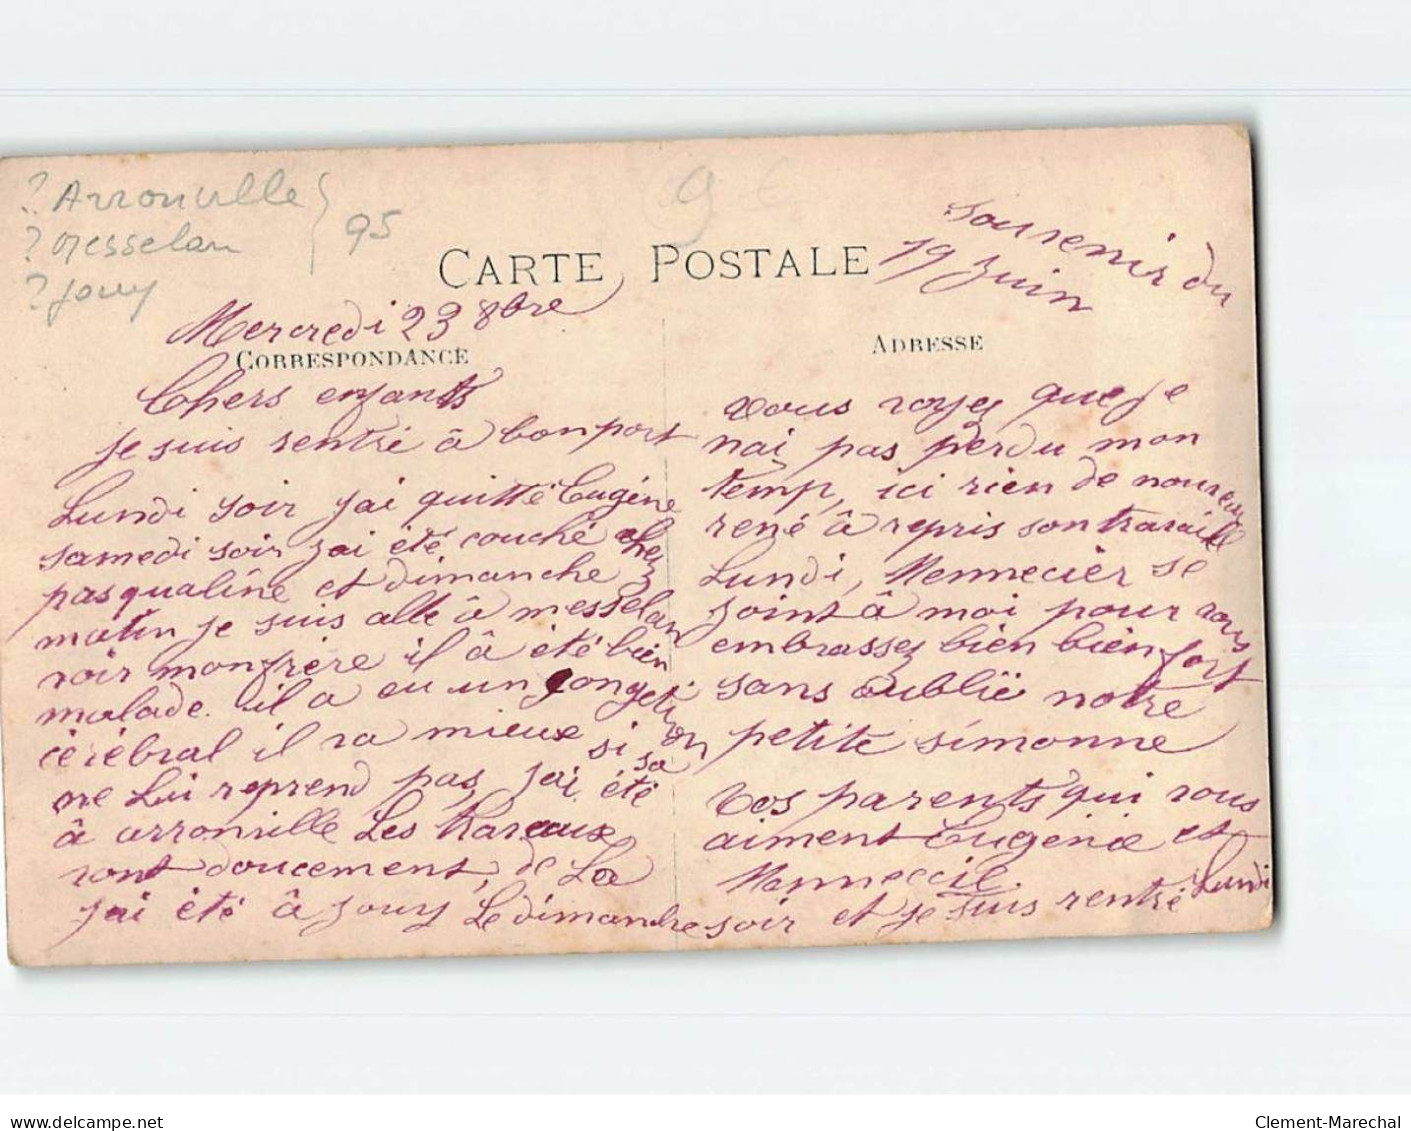 ? Arronville
? Messelan
? Jouy
95
CARTE POSTALE
Souvenir du
19 Juin
Mercredi 23 8bre
CORRESPONDANCE
Chers enfants
je suis rentré à bon port
Lundi soir j'ai quitté Eugéne
samedi soir j'ai été couché chez
pasqualine et dimanche
matin je suis allé à messelan
voir mon frère il â été bien
malade il a eu un congestion
cérébral il va mieux si sa
ne Lui reprend pas, j'ai été
à arronville Les travaux
vont doucement, de La
j'ai été â jouy Le dimanche soir et je suis rentré Lundi
ADRESSE
vous voyez que je
nai pas perdu mon
temp, ici rien de nouveau
rené â repris son travaille
Lundi, Mennecier se
joint â moi pour vous
embrassez bien bien fort
sans oublïe notre
petite simonne
Vos parents qui vous
aiment Eugénie et
delcampe.net
Clement-Marechal